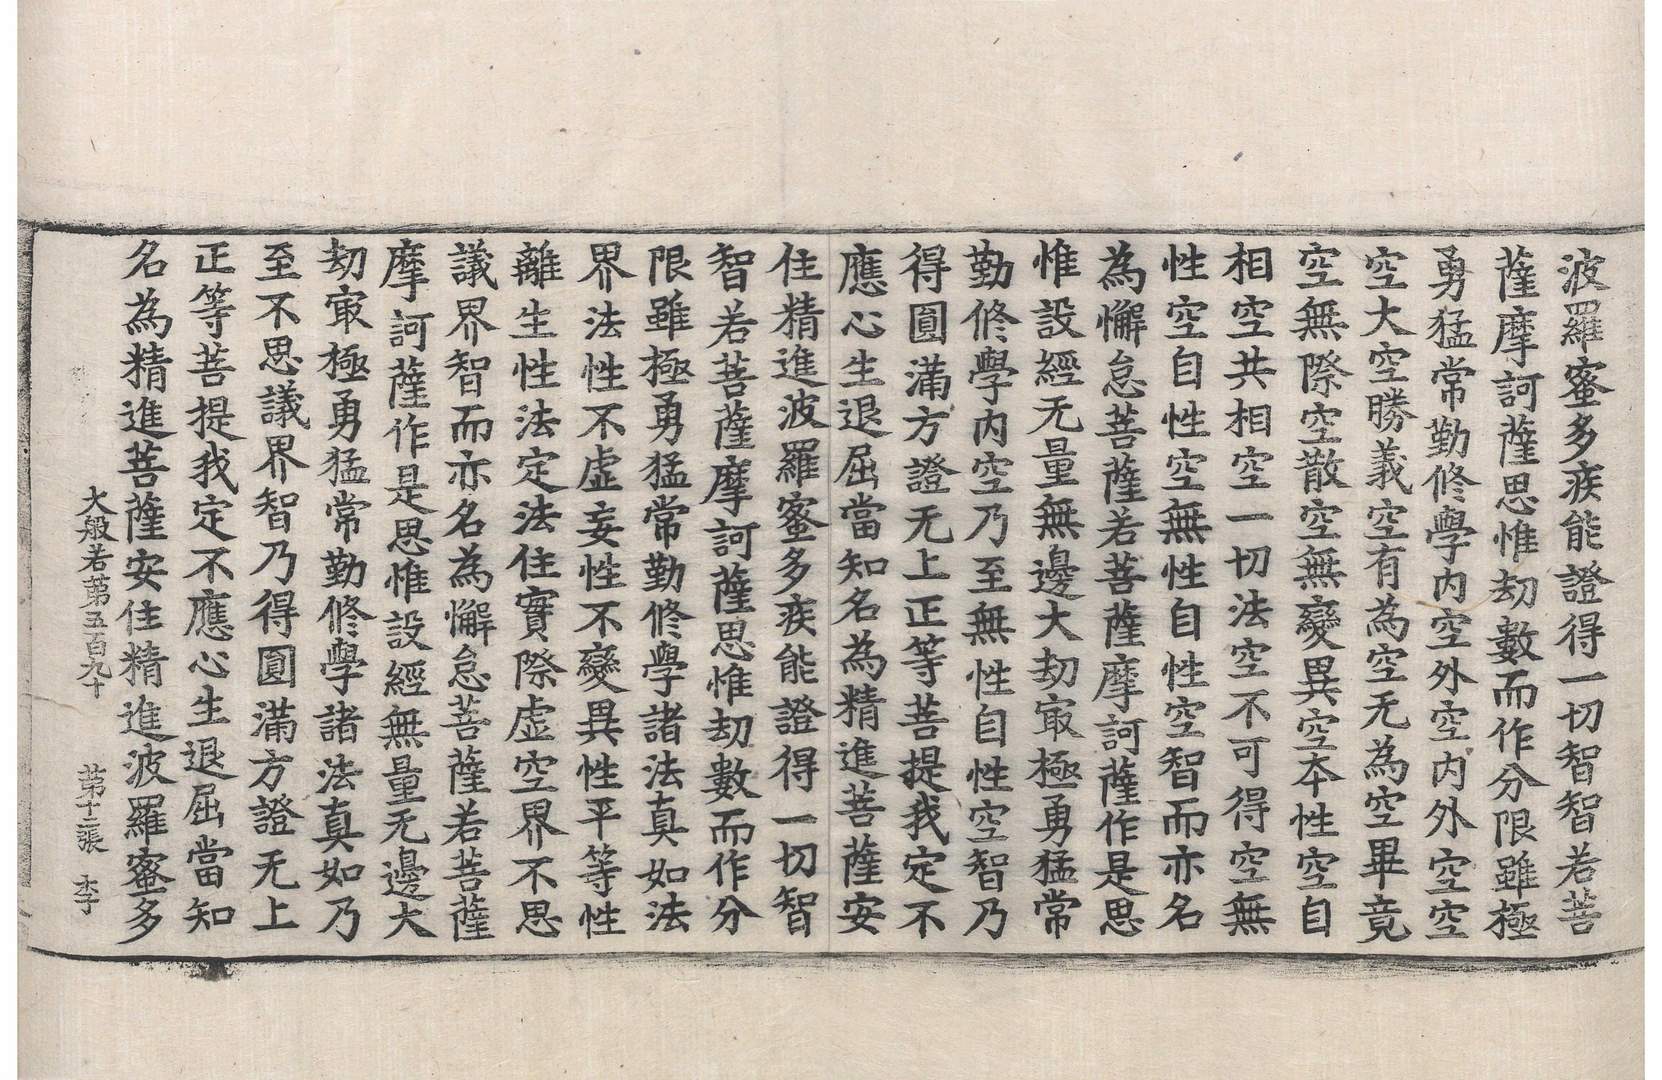 波羅蜜多疾能證得一切智智若菩
薩摩訶薩思惟劫數而作分限雖極
勇猛常勤修學內空外空內外空空
空大空勝義空有為空无為空畢竟
空無際空散空無變異空本性空自
相空共相空一切法空不可得空無
性空自性空無性自性空智而亦名
為懈怠菩薩若菩薩摩訶薩作是思
惟設經无量無邊大劫㝡極勇猛常
勤修學內空乃至無性自性空智乃
得圓滿方證无上正等菩提我定不
應心生退屈當知名為精進菩薩安
住精進波羅蜜多疾能證得一切智
智若菩薩摩訶薩思惟劫數而作分
限雖極勇猛常勤修學諸法真如法
界法性不虛妄性不變異性平等性
離生性法定法住實際虛空界不思
議界智而亦名為懈怠菩薩若菩薩
摩訶薩作是思惟設經無量无邊大
劫㝡極勇猛常勤修學諸法真如乃
至不思議界智乃得圓滿方證无上
正等菩提我定不應心生退屈當知
名為精進菩薩安住精進波羅蜜多
大般若第五百九十 第十二張 李